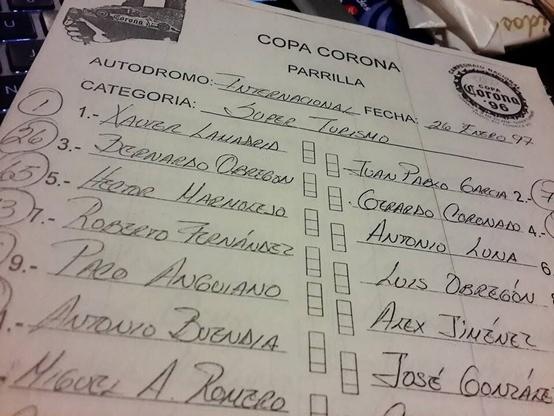 Corona
COPA CORONA
PARRILLA
AUTODROMO: INTERNACIONAL FECHA: 26 ENERO 97
CATEGORIA: SUPER TURISMO
CAMPEONATO NACIONAL
COPA
Corona
'96
1 1.- XAVIER LAMADRID
JUAN PABLO GARCIA 2.- 7
26 3.- BERNARDO OBREGON
GERARDO CORONADO 4.-
65 5.- HECTOR MARMOLEJO
ANTONIO LUNA 6
3 7.- ROBERTO FERNÁNDEZ
LUIS OBREGÓN
9.- PACO ANGUIANO
ALEX JIMÉNEZ
.- ANTONIO BUENDIA
JOSÉ GONZÁLE
.- MIGUEL A. ROMERO